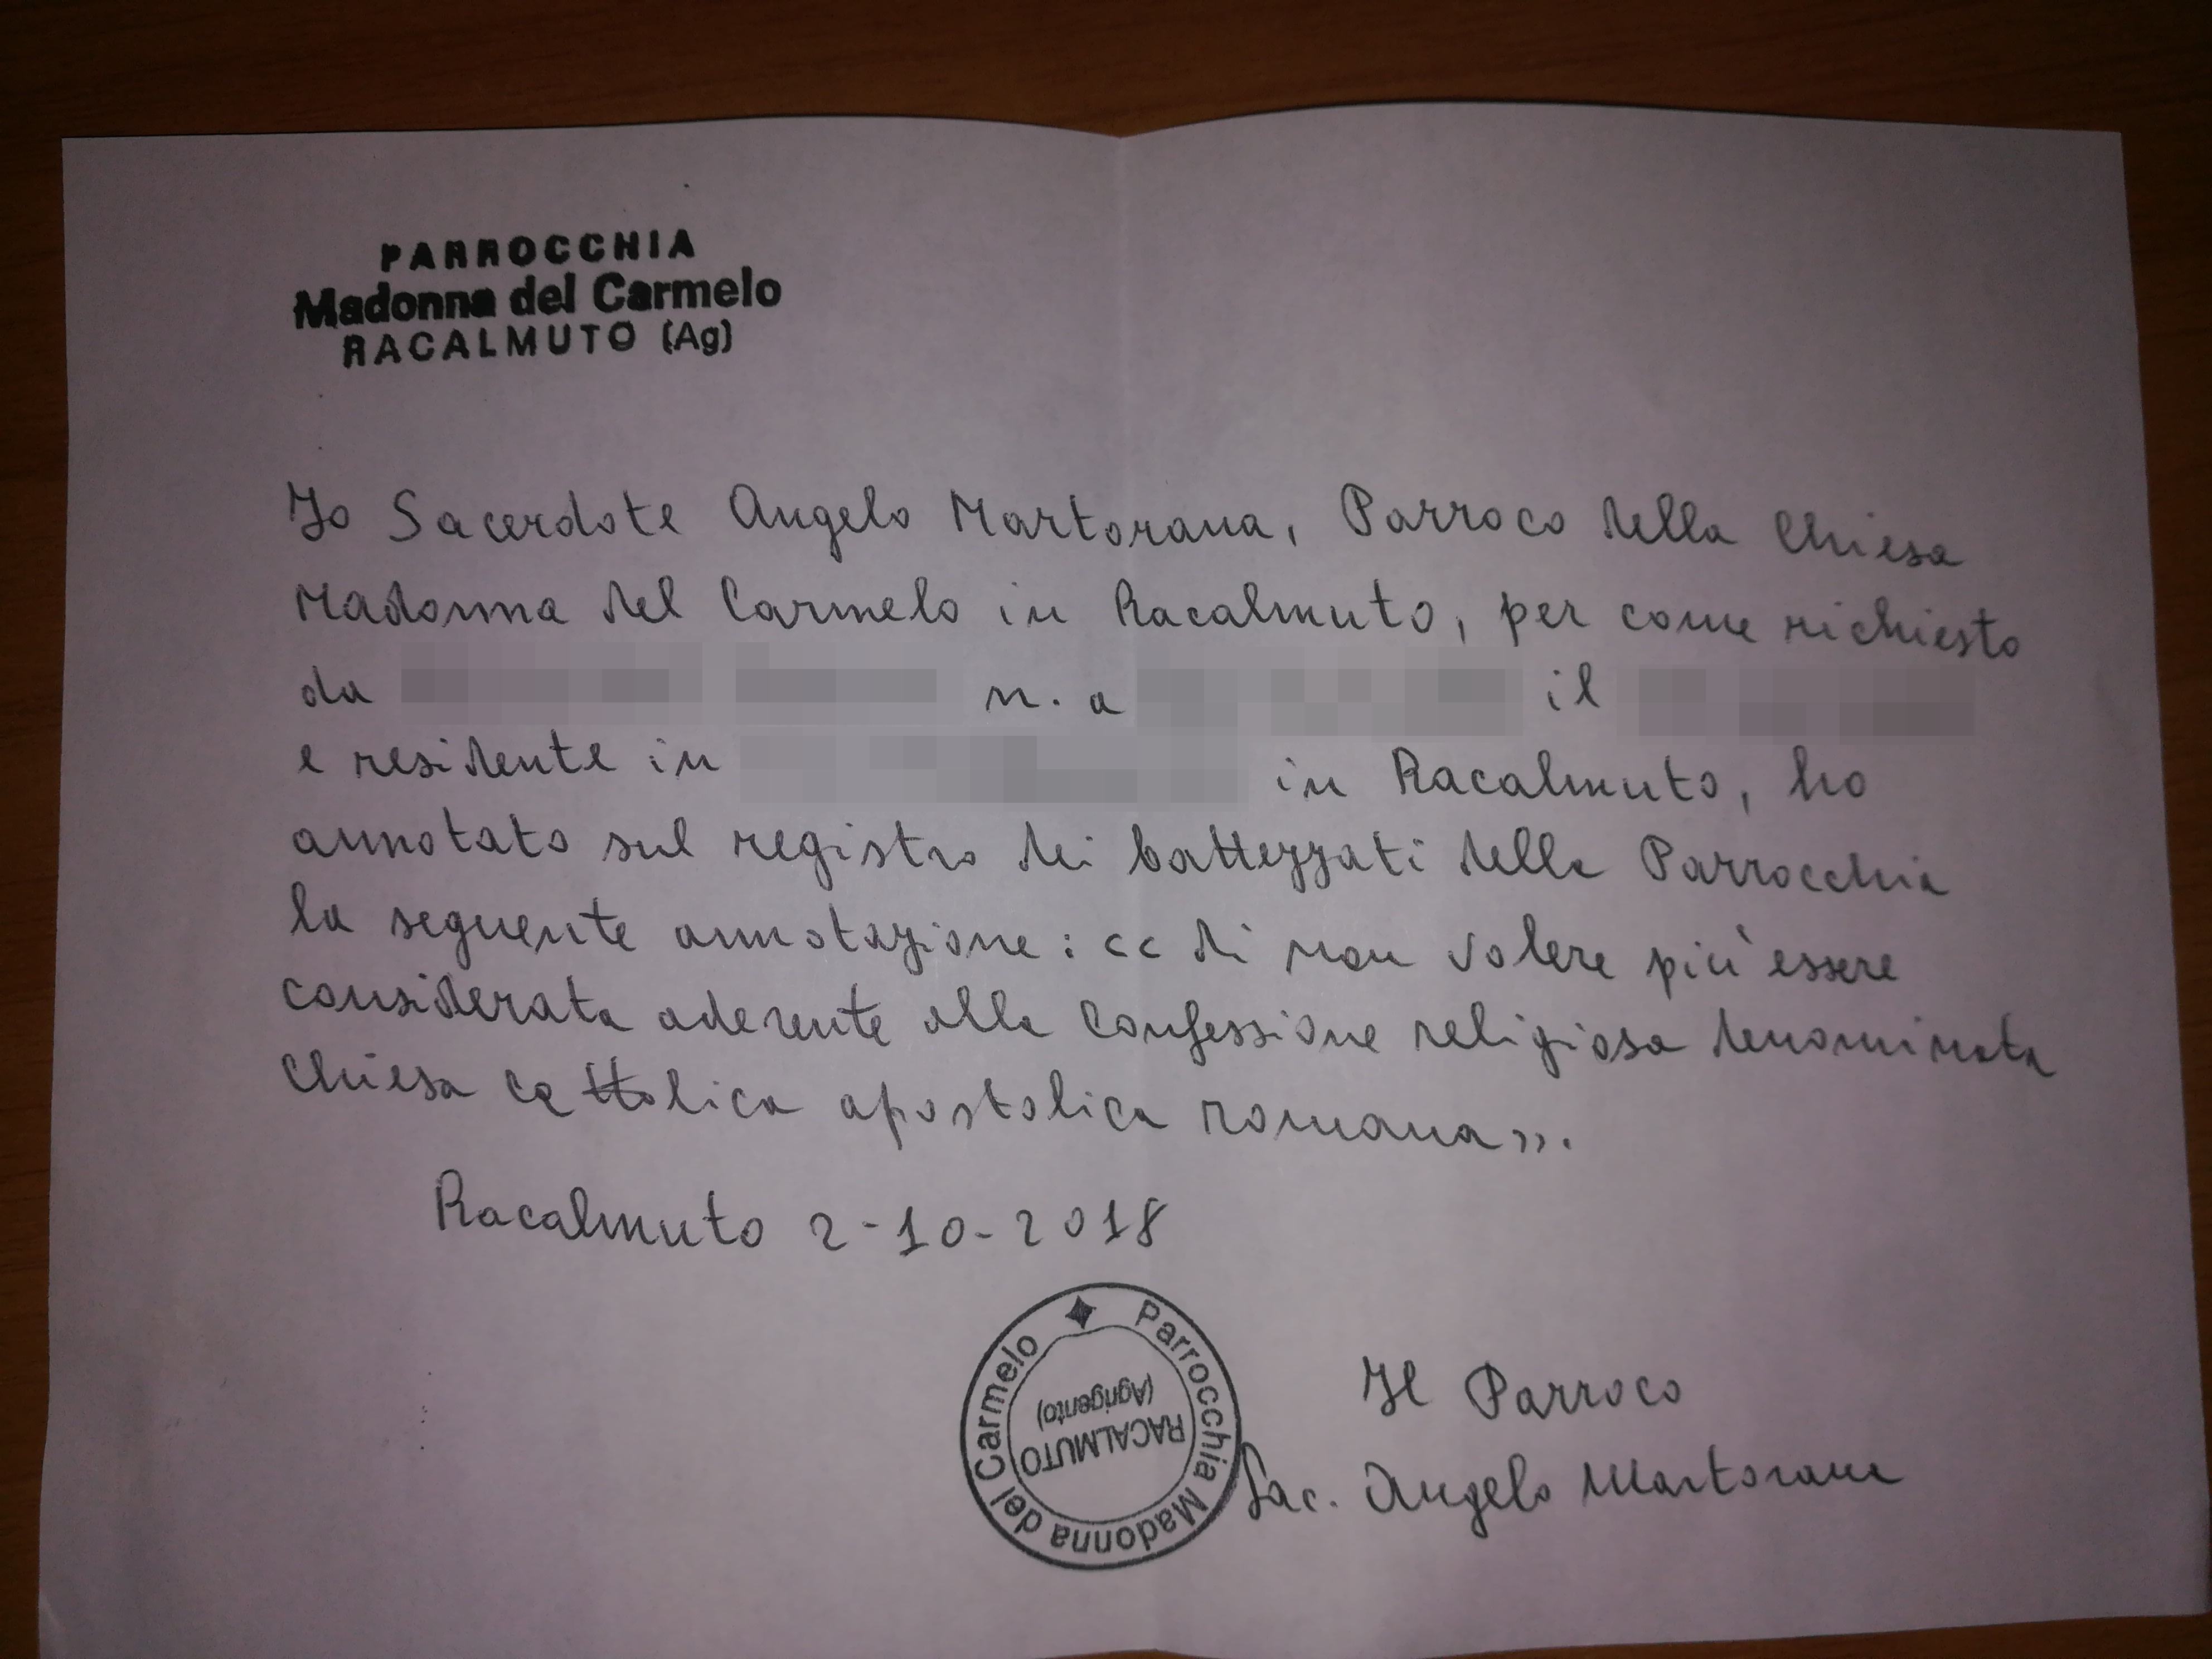 PARROCCHIA
Madonna del Carmelo
RACALMUTO (Ag)
Io Sacerdote Angelo Martorana, Parroco della Chiesa
Madonna del Carmelo in Racalmuto, per come richiesto
da n. a il
e residente in in Racalmuto, ho
annotato sul registro dei battezzati della Parrocchia
la seguente annotazione: << di non volere più essere
considerata aderente alla Confessione religiosa denominata
Chiesa cattolica apostolica romana>>.
Racalmuto 2-10-2018
Parrocchia Madonna del Carmelo
RACALMUTO
(Agrigento)
Il Parroco
Sac. Angelo Martorana